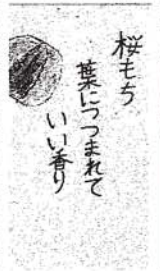 桜もち
葉につつまれて
いい香り